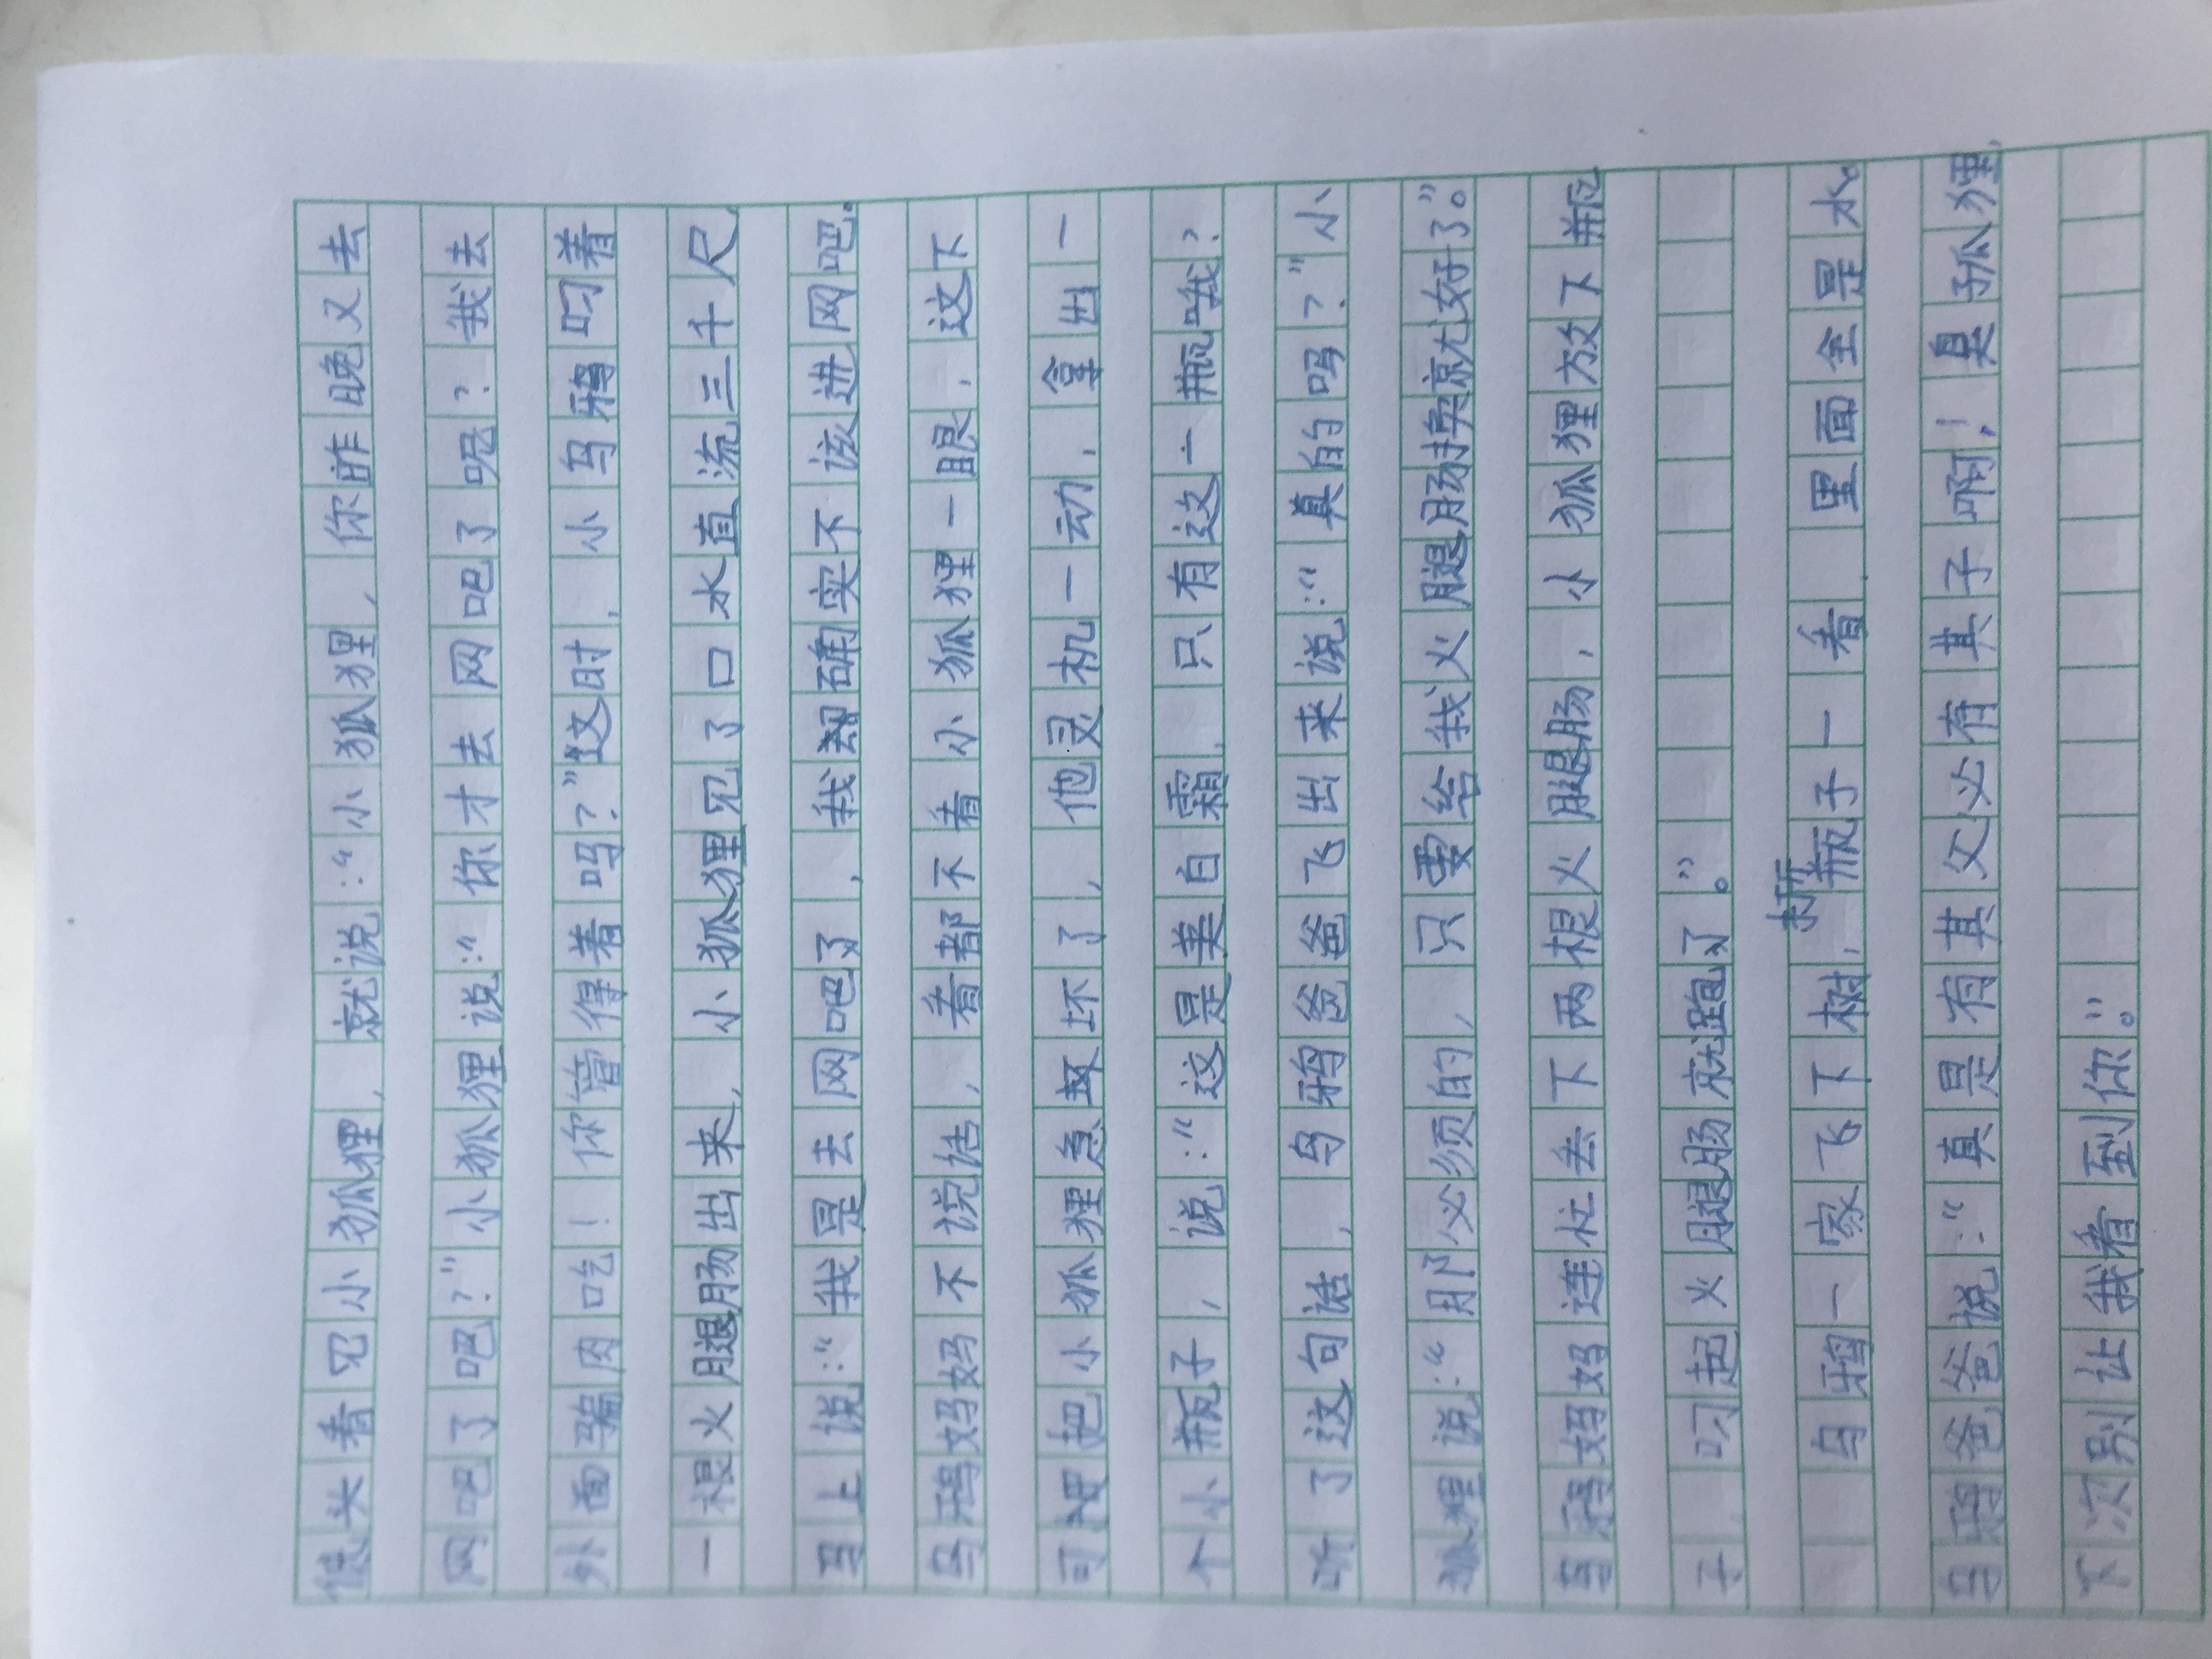 低头看见小狐狸，就说：“小狐狸，你昨晚又去
网吧了吧？”小狐狸说：“你才去网吧了呢？我去
外面骗肉吃！你管得着吗？”这时，小乌鸦叼着
一根火腿肠出来，小狐狸见了口水直流三千尺，
马上说：“我是去网吧了，我却确实不该进网吧。
乌鸦妈妈不说话，看都不看小狐狸一眼，这下
可把小狐狸急坏了，他灵机一动，拿出一
个小瓶子，说：“这是美白霜，只有这一瓶哦？
听了这句话，乌鸦爸爸飞出来说：“真的吗？”小
狐狸说：“那必须的，只要给我火腿肠换就好了”。
乌鸦妈妈连忙丢下两根火腿肠，小狐狸放下瓶
子，叼起火腿肠就跑了。”
乌鸦一家飞下树，拆瓶子一看，里面全是水。
乌鸦爸爸说：“真是有其父必有其子啊！臭狐狸，
下次别让我看到你。”